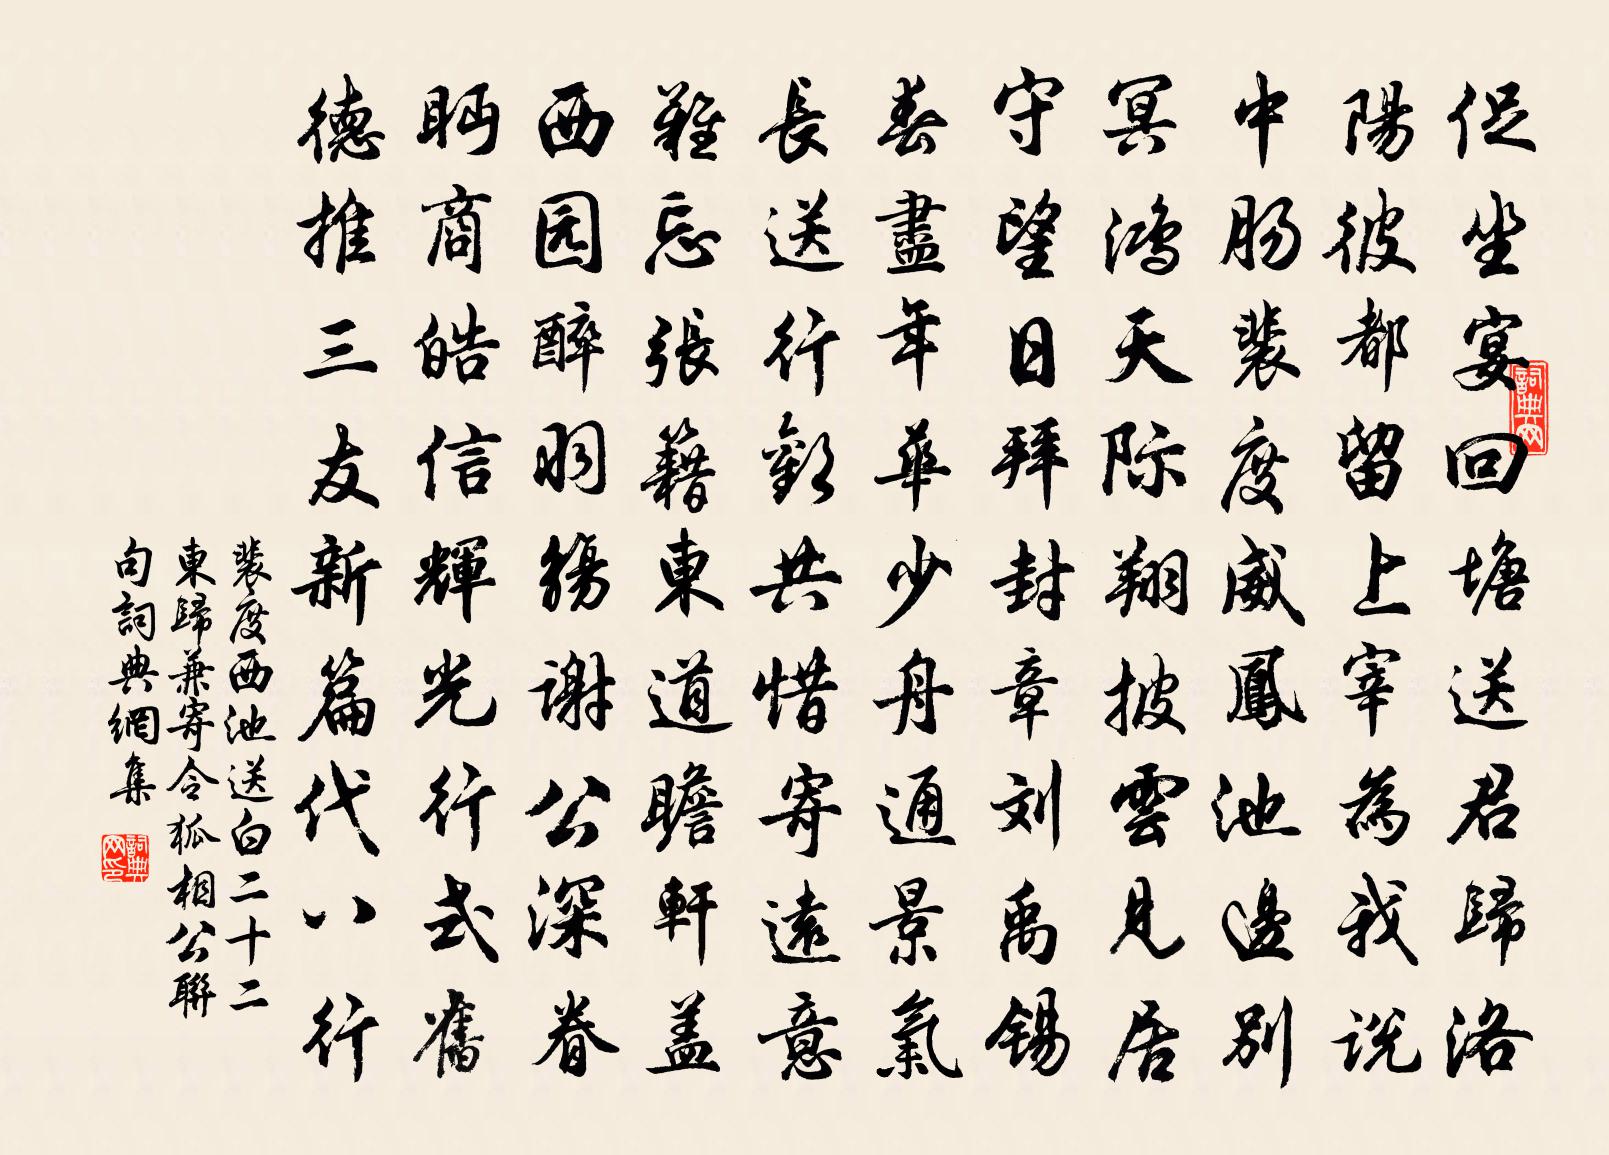 促坐宴回塘送君歸洛
陽彼都留上宰為我説
中肠裴度威鳳池邊別
冥鸿天际翔披雲見居
守望日拜封章刘禹锡
春盡年華少舟通景氣
長送行歡共惜寄遠意
難忘張籍東道瞻軒盖
西园醉羽觴谢公深眷
眄商皓信輝光行式舊
德推三友新篇代八行
裴度西池送白二十二
東歸兼寄令狐相公聯
句詞典網集
詞典网
詞典网印